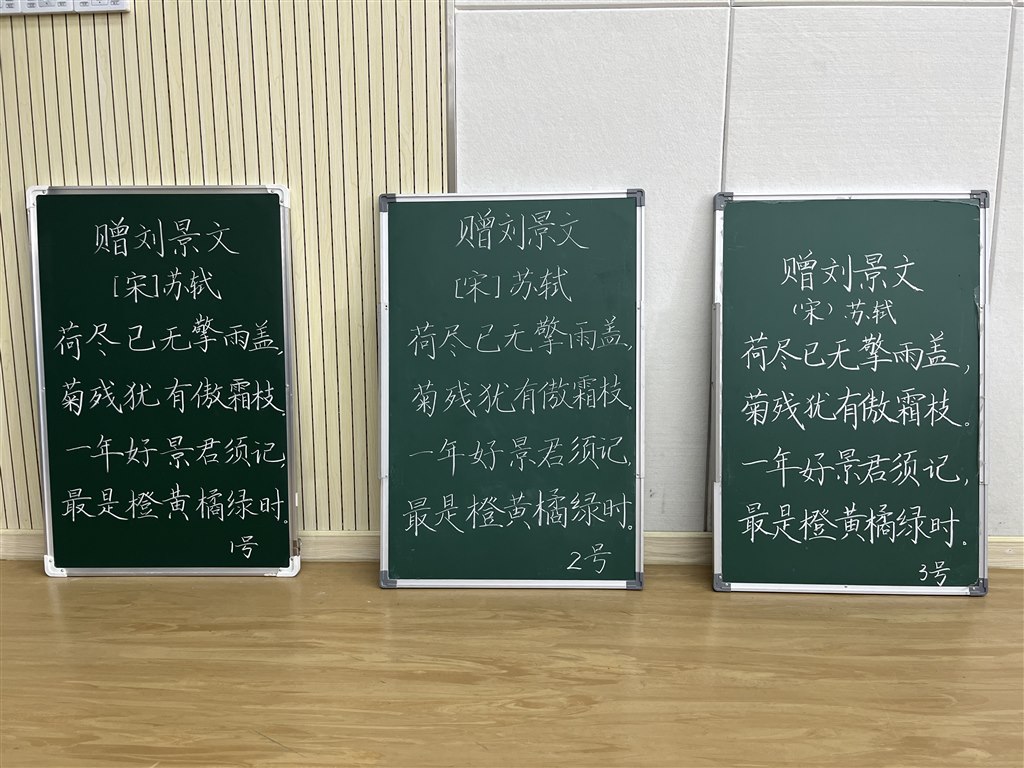 赠刘景文
[宋]苏轼
荷尽已无擎雨盖,
菊残犹有傲霜枝.
一年好景君须记,
最是橙黄橘绿时。
1号
赠刘景文
[宋]苏轼
荷尽已无擎雨盖,
菊残犹有傲霜枝。
一年好景君须记,
最是橙黄橘绿时。
2号
赠刘景文
(宋)苏轼
荷尽已无擎雨盖,
菊残犹有傲霜枝。
一年好景君须记,
最是橙黄橘绿时。
3号